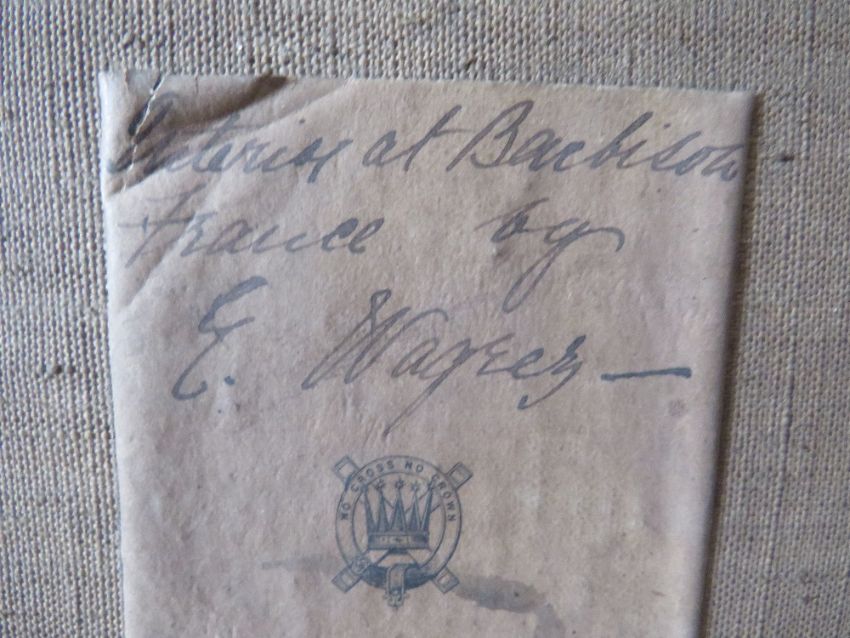 Interior at Barbison
France by
E. Wagrez —
NO CROSS NO CROWN